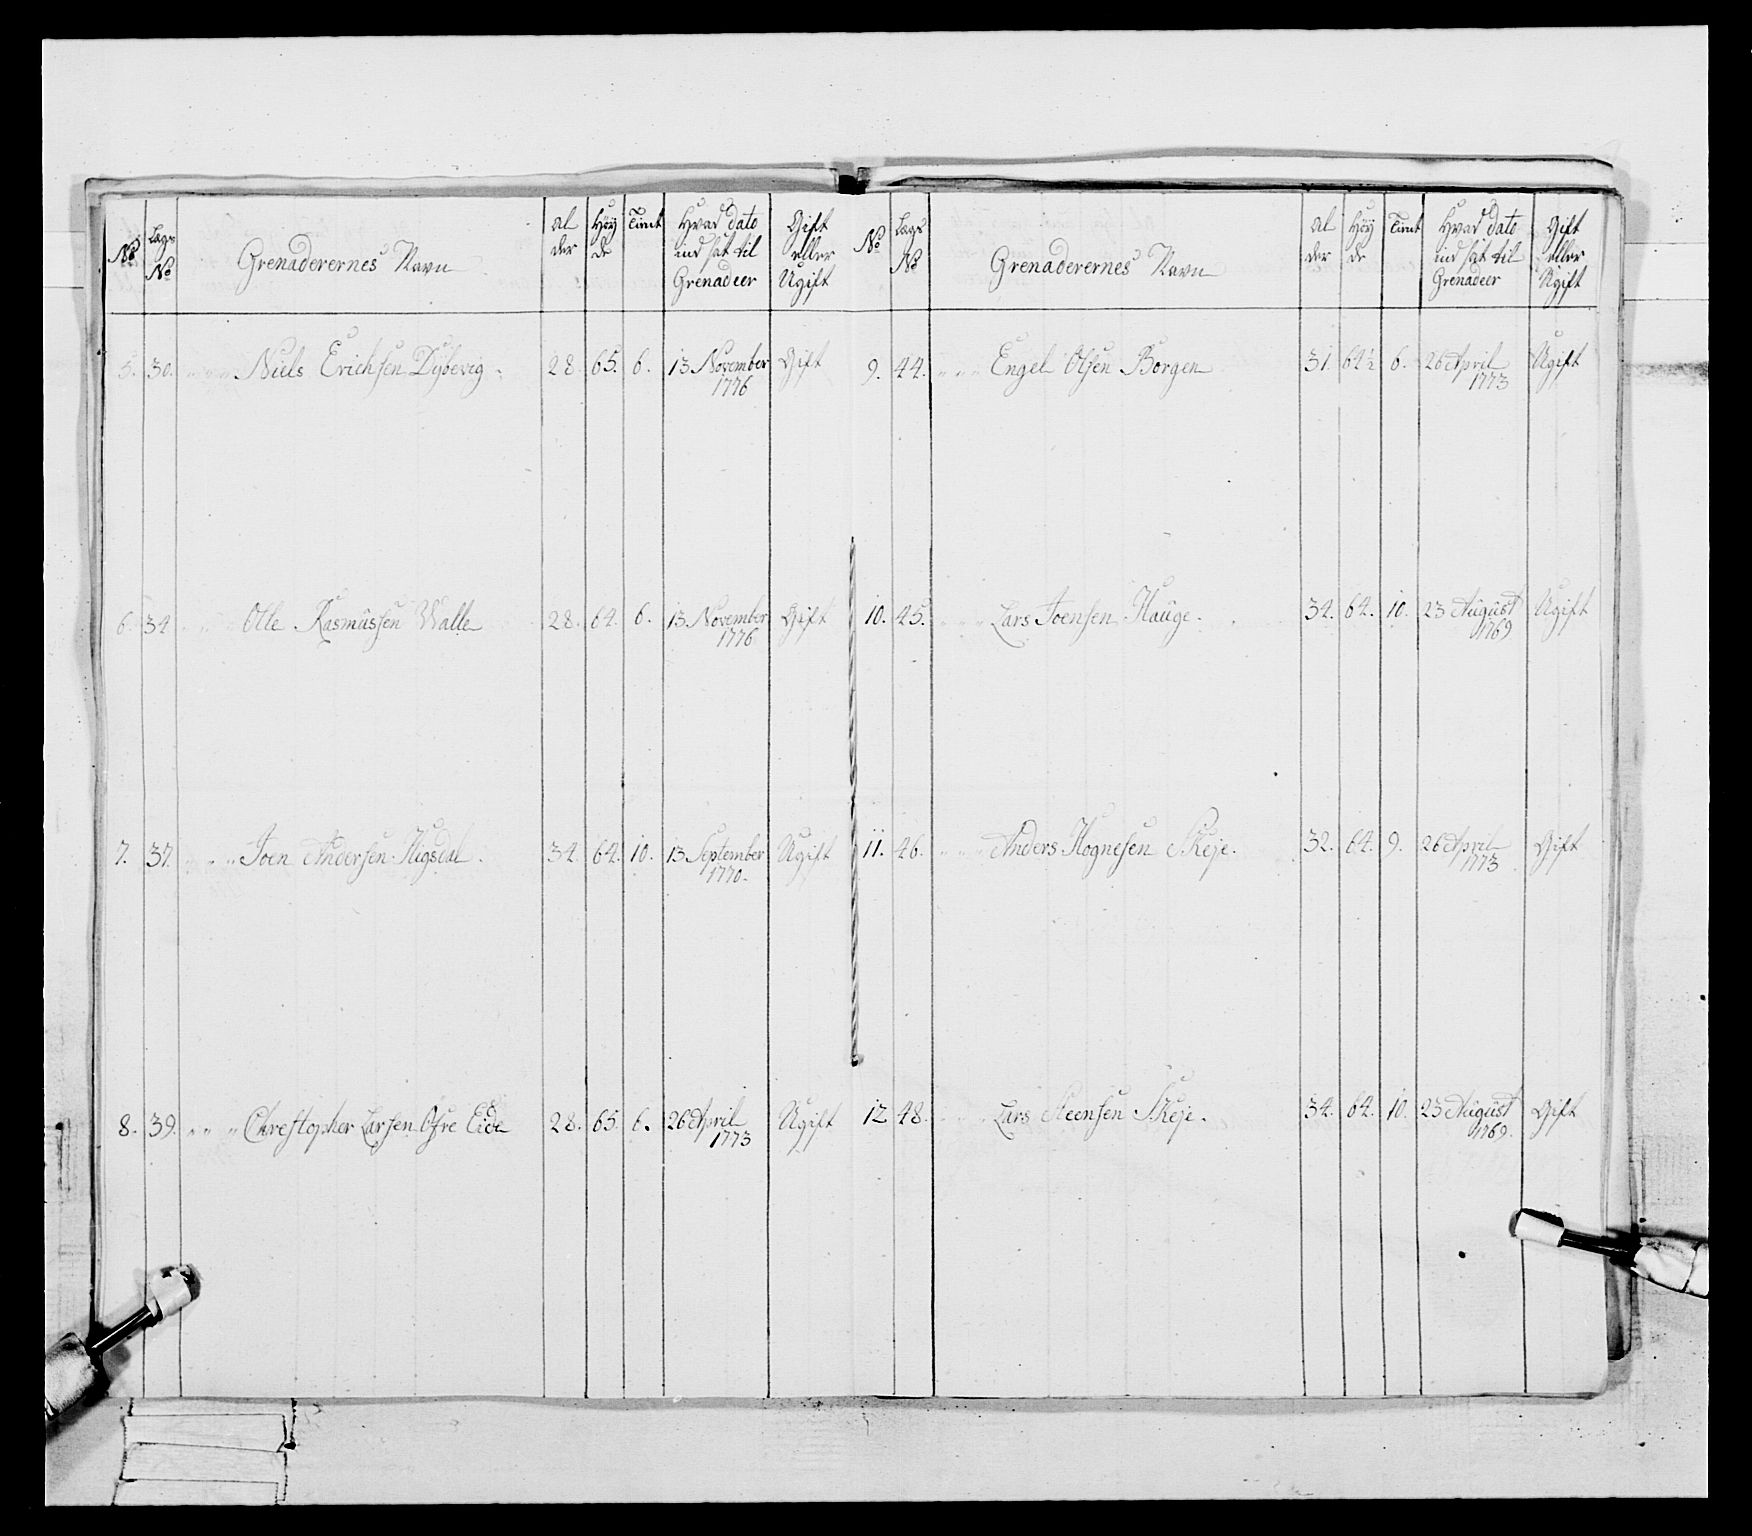 No Lags No Grenaderernes Navn Al der Höy de Tient Hvad dato ind sat til Grenadeer Gift eller Ugift
5. 30. Niels Erichsen Dybevig 28. 65. 6. 13 November 1776 Gift
6. 34 Olle Rasmussen Walle 28. 64. 6. 13 November 1776 Gift
7. 37. Joen Andersen Higsdal 34. 64. 10. 13 September 1770. Ugift
8. 39. Christopher Larsen Öfre Eide 28. 65. 6. 26 April 1773 Ugift
No Lags No Grenaderernes Navn Al der Höy de Tient Hvad dato ind sat til Grenadeer Gift eller Ugift
9. 44. Engel Olsen Borgen 31. 64½ 6. 26 April 1773 Ugift
10. 45. Lars Joensen Hauge. 34. 64. 10. 23 August 1769 Ugift
11. 46. Anders Hognesen Skeje. 32. 64. 9. 26 April 1773 Gift
12 48. Lars Steensen Skeje. 34. 64. 10. 23 August 1769. Gift